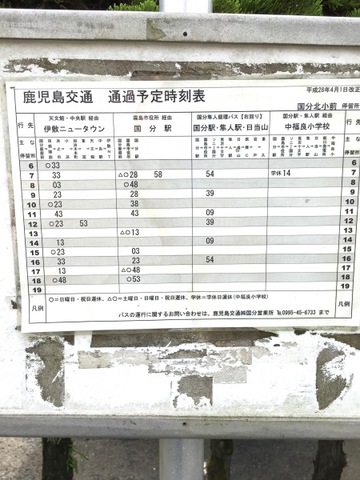 鹿児島交通 通過予定時刻表
平成28年4月1日改正
国分北小前 停留所
行先 天文館・中央駅 経由 伊敷ニュータウン 霧島市役所 経由 国分駅 国分隼人循環バス【右回り】 国分駅・隼人駅・日当山 国分駅・隼人駅 経由 中福良小学校 行先
主な停留所 主な停留所
6 ○33 6
7 33 △○28 58 54 学休14 7
8 03 ○48 8
9 23 28 39 9
10 ○23 ○38 10
11 43 43 09 11
12 ○23 53 39 12
13 △○13 13
14 13 09 14
15 ○23 03 15
16 33 23 54 16
17 13 △○48 17
18 ○48 ○53 18
19 19
凡例 ○=日曜日・祝日運休、△○=土曜日・日曜日・祝日運休、学休=学休日運休(中福良小学校) 凡例
バスの運行に関するお問い合わせは、鹿児島交通㈱国分営業所 ℡0995-45-6733 まで